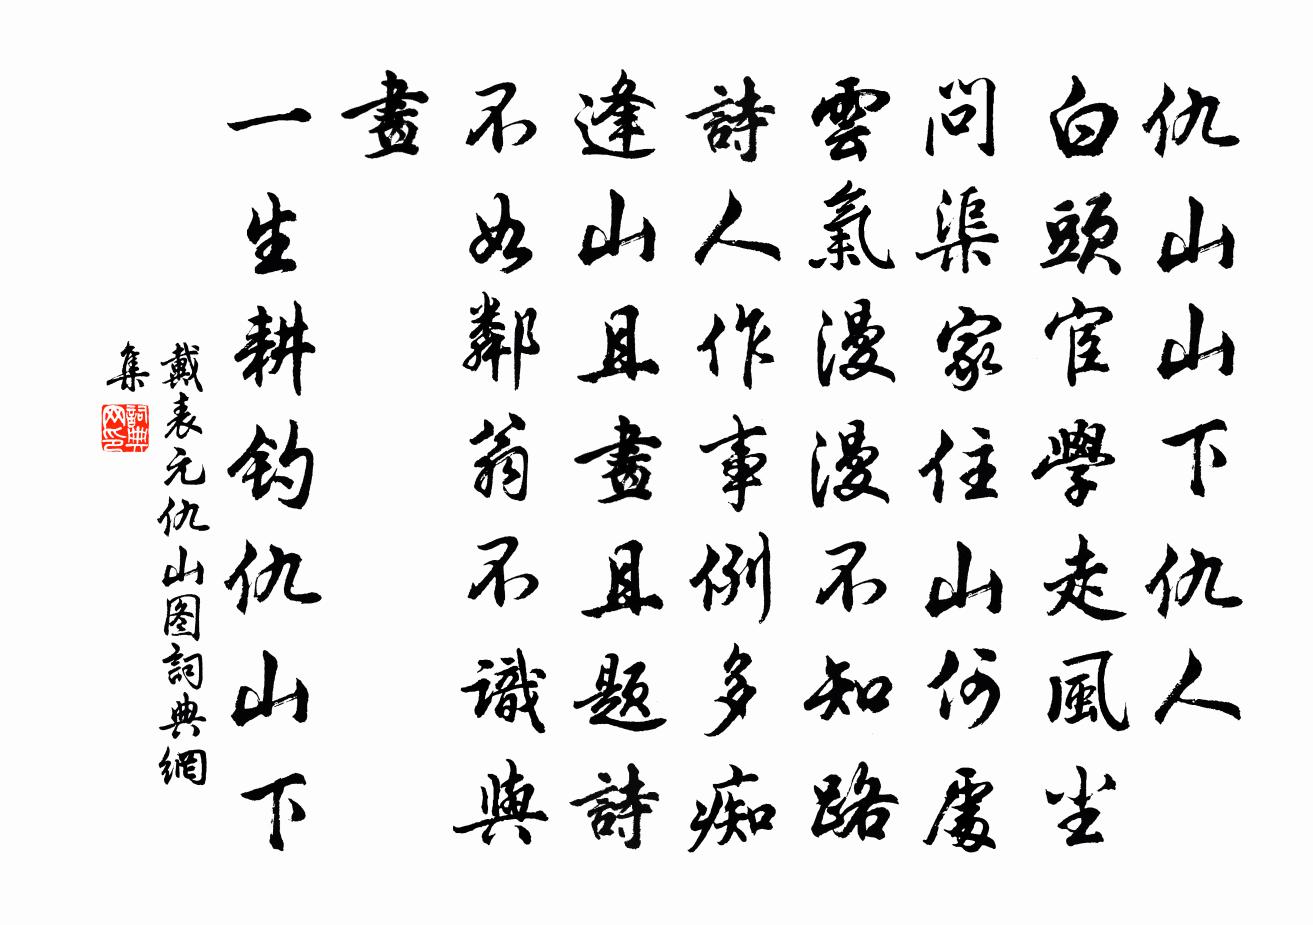 仇山山下仇人
白頭宦學走風尘
問渠家住山何處
雲氣漫漫不知路
詩人作事例多痴
逢山且畫且題詩
不如鄰翁不識與
畫
一生耕釣仇山下
戴表元仇山图詞典網
集
詞典
网印